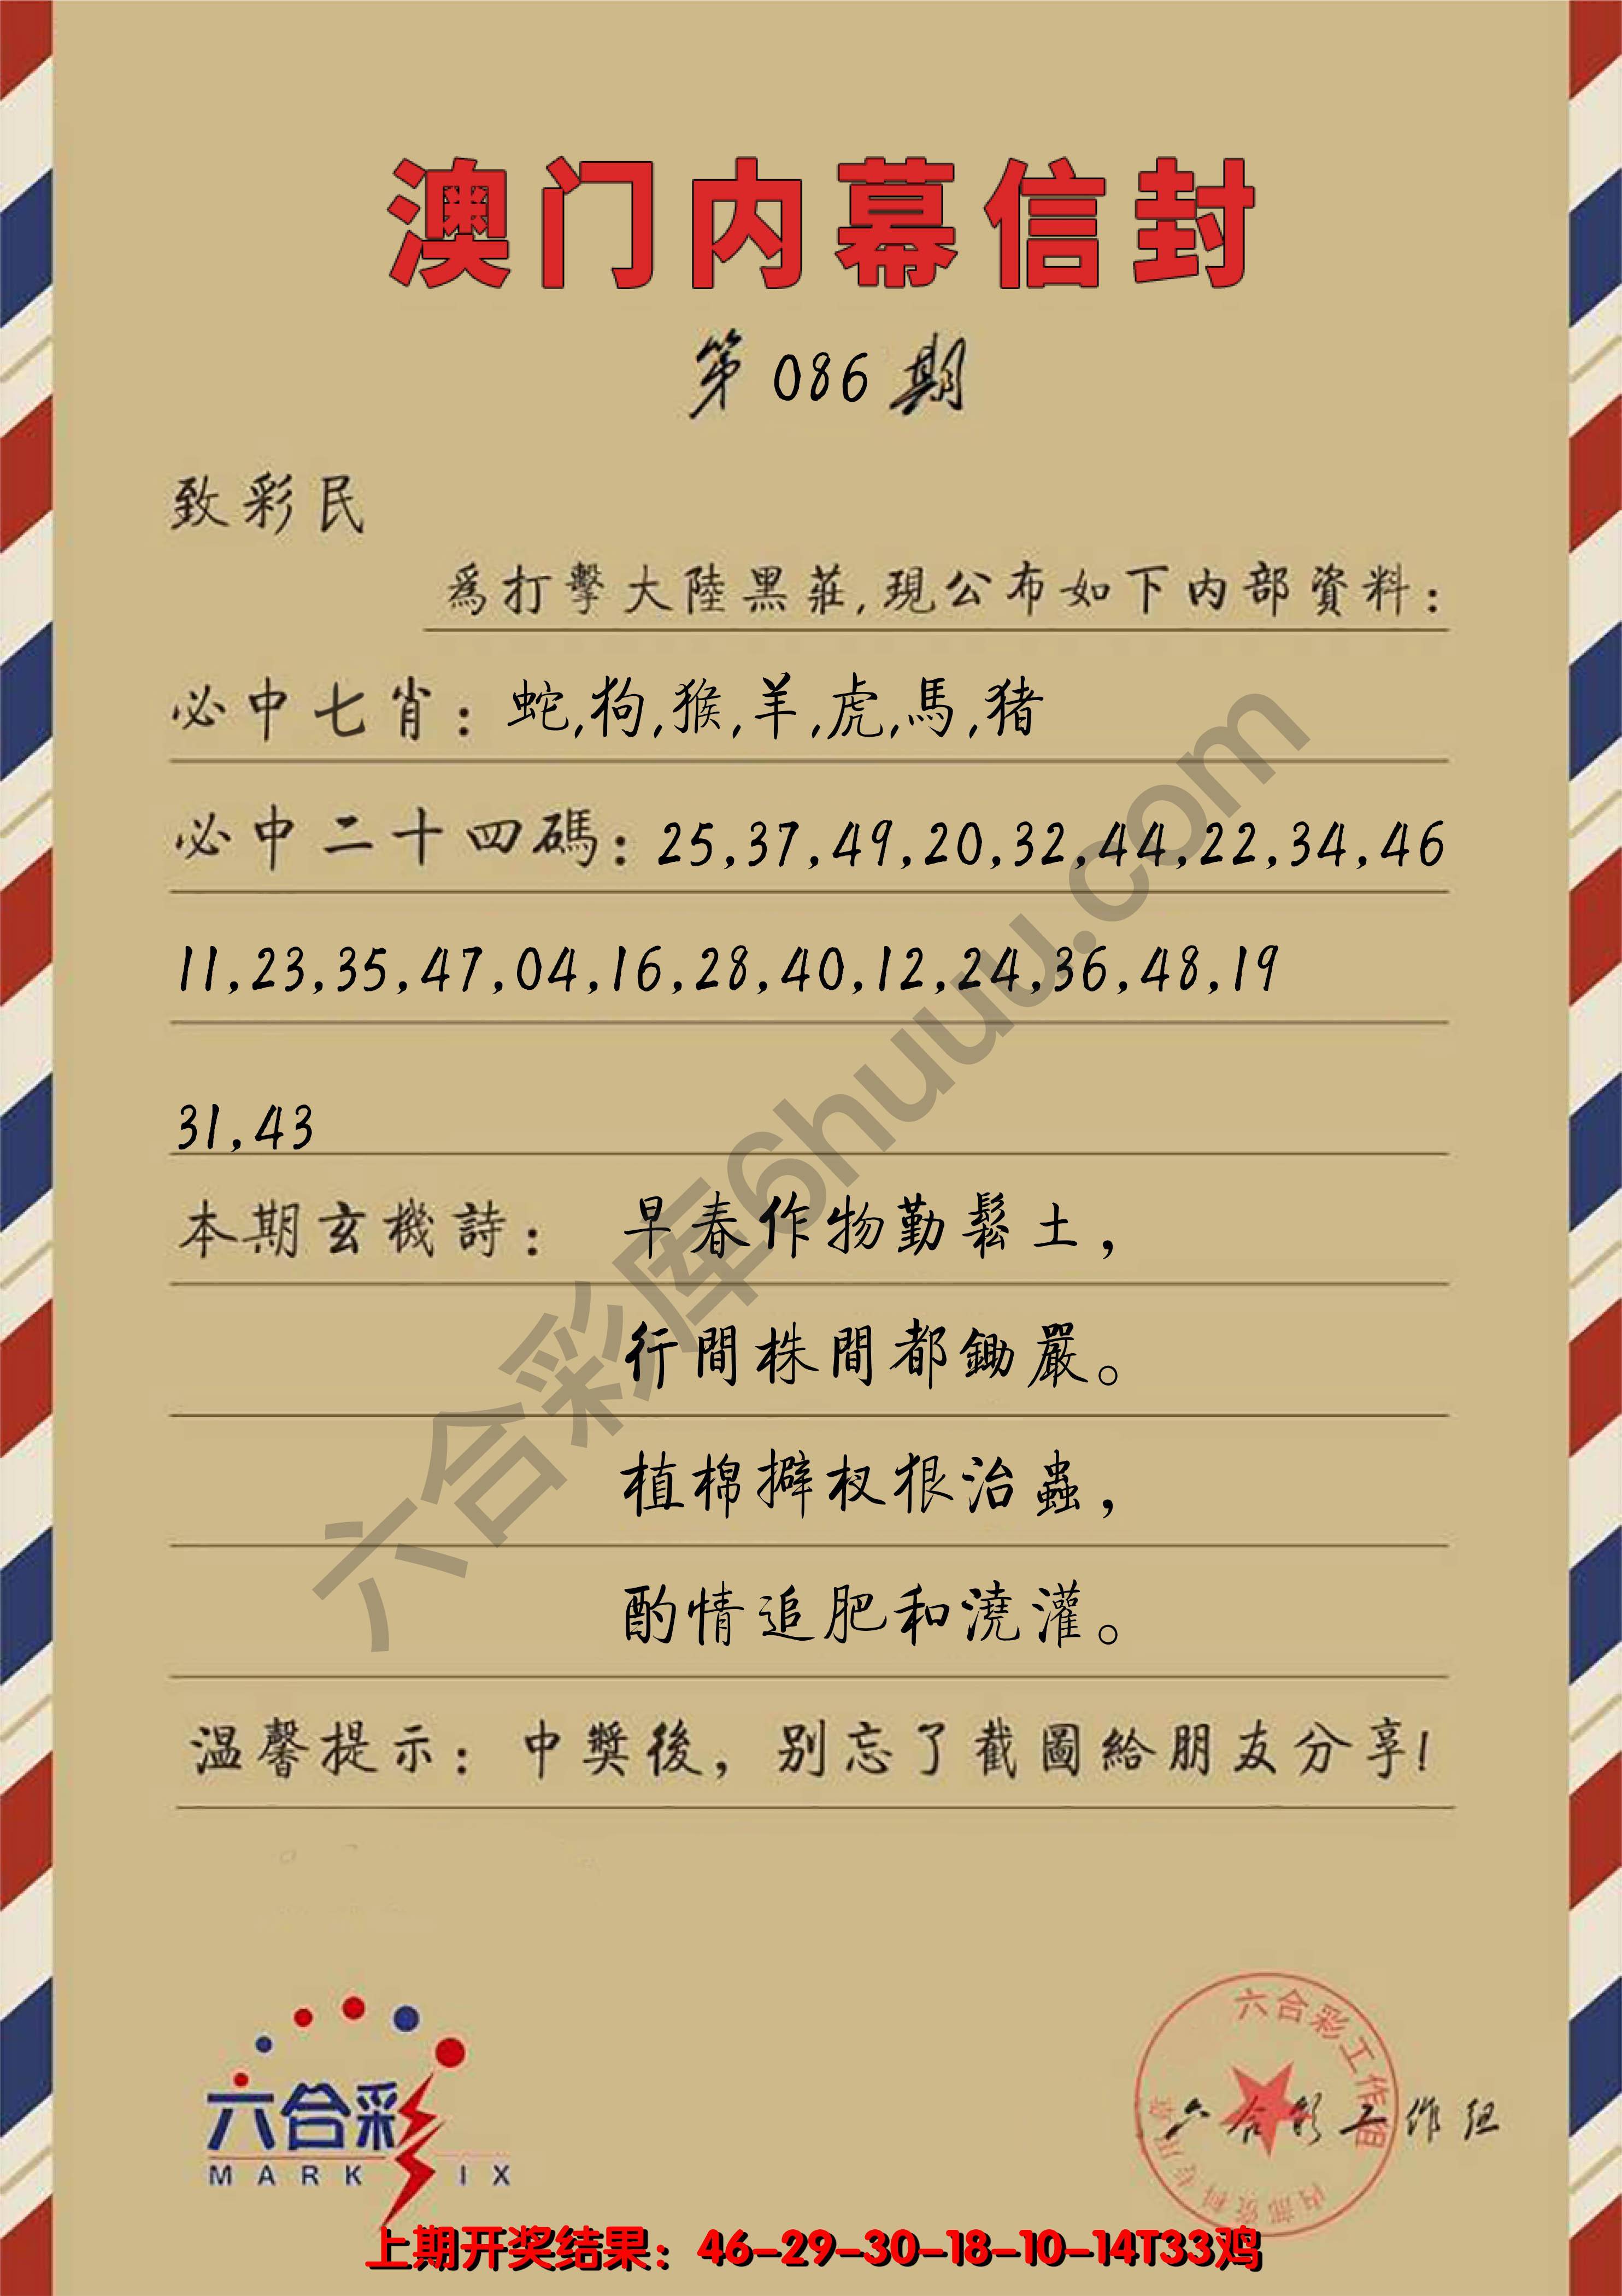 澳门内幕信封
第 086 期
致彩民
爲打擊大陸黑莊,現公布如下内部資料:
必中七肖: 蛇,狗,猴,羊,虎,馬,猪
必中二十四碼: 25,37,49,20,32,44,22,34,46
11,23,35,47,04,16,28,40,12,24,36,48,19
31,43
本期玄機詩: 早春作物勤鬆土，
行間株間都鋤嚴。
植棉擗杈狠治蟲，
酌情追肥和澆灌。
温馨提示: 中獎後，别忘了截圖給朋友分享!
六合彩库6huuu.com
六合彩
MARK SIX
六合彩工作组
内部资料专用章
六合彩工作组
上期开奖结果：46-29-30-18-10-14T33鸡